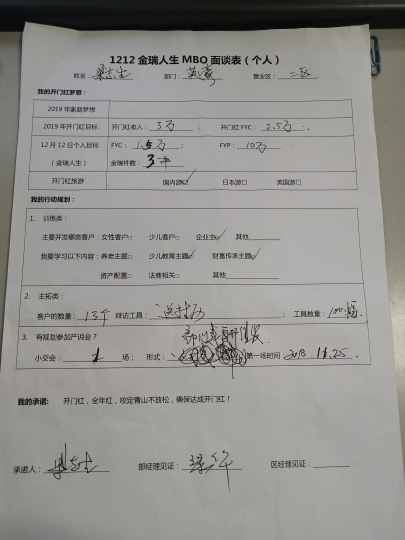 1212 金瑞人生 MBO 面谈表（个人）
姓名： 部门： 营业区：二区
我的开门红梦想：
2019 年家庭梦想
2019 年开门红目标 开门红收入：3万； 开门红 FYC：2.5万.
12 月 12 日个人目标 FYC：1.5万 FYP：10万
（金瑞人生） 金瑞件数：3件
开门红旅游 国内游☑ 日本游□ 英国游□
我的行动规划：
1. 训练类：
主要开发哪类客户：女性客户□ 少儿客户□ 企业主☑ 其他
我要学习以下内容：养老主题□ 少儿教育主题☑ 财富传承主题☑
资产配置□ 法商相关□ 其他
2. 主拓类：
客户的数量：13个 拜访工具： ；工具数量：100
3. 有规划参加产说会？
小交会：1 场； 形式： 第一场时间：2018.11.25.
我的承诺： 开门红，全年红，咬定青山不放松，确保达成开门红！
承诺人： 部经理见证： 区经理见证：